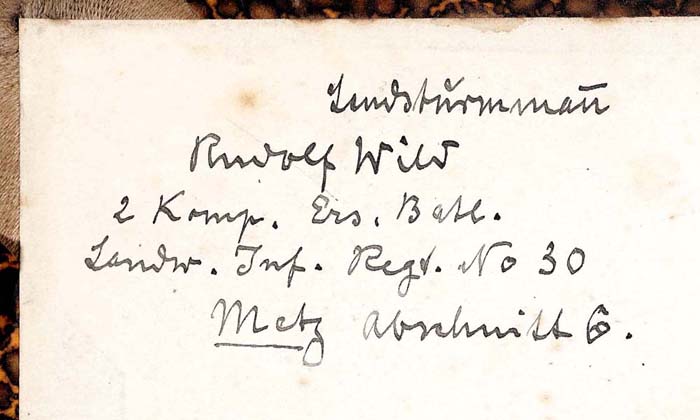 Landsturmmann
Rudolf Wild
2 Komp. Ers. Batl.
Landw. Inf. Regt. No 30
Metz Abschnitt 6.